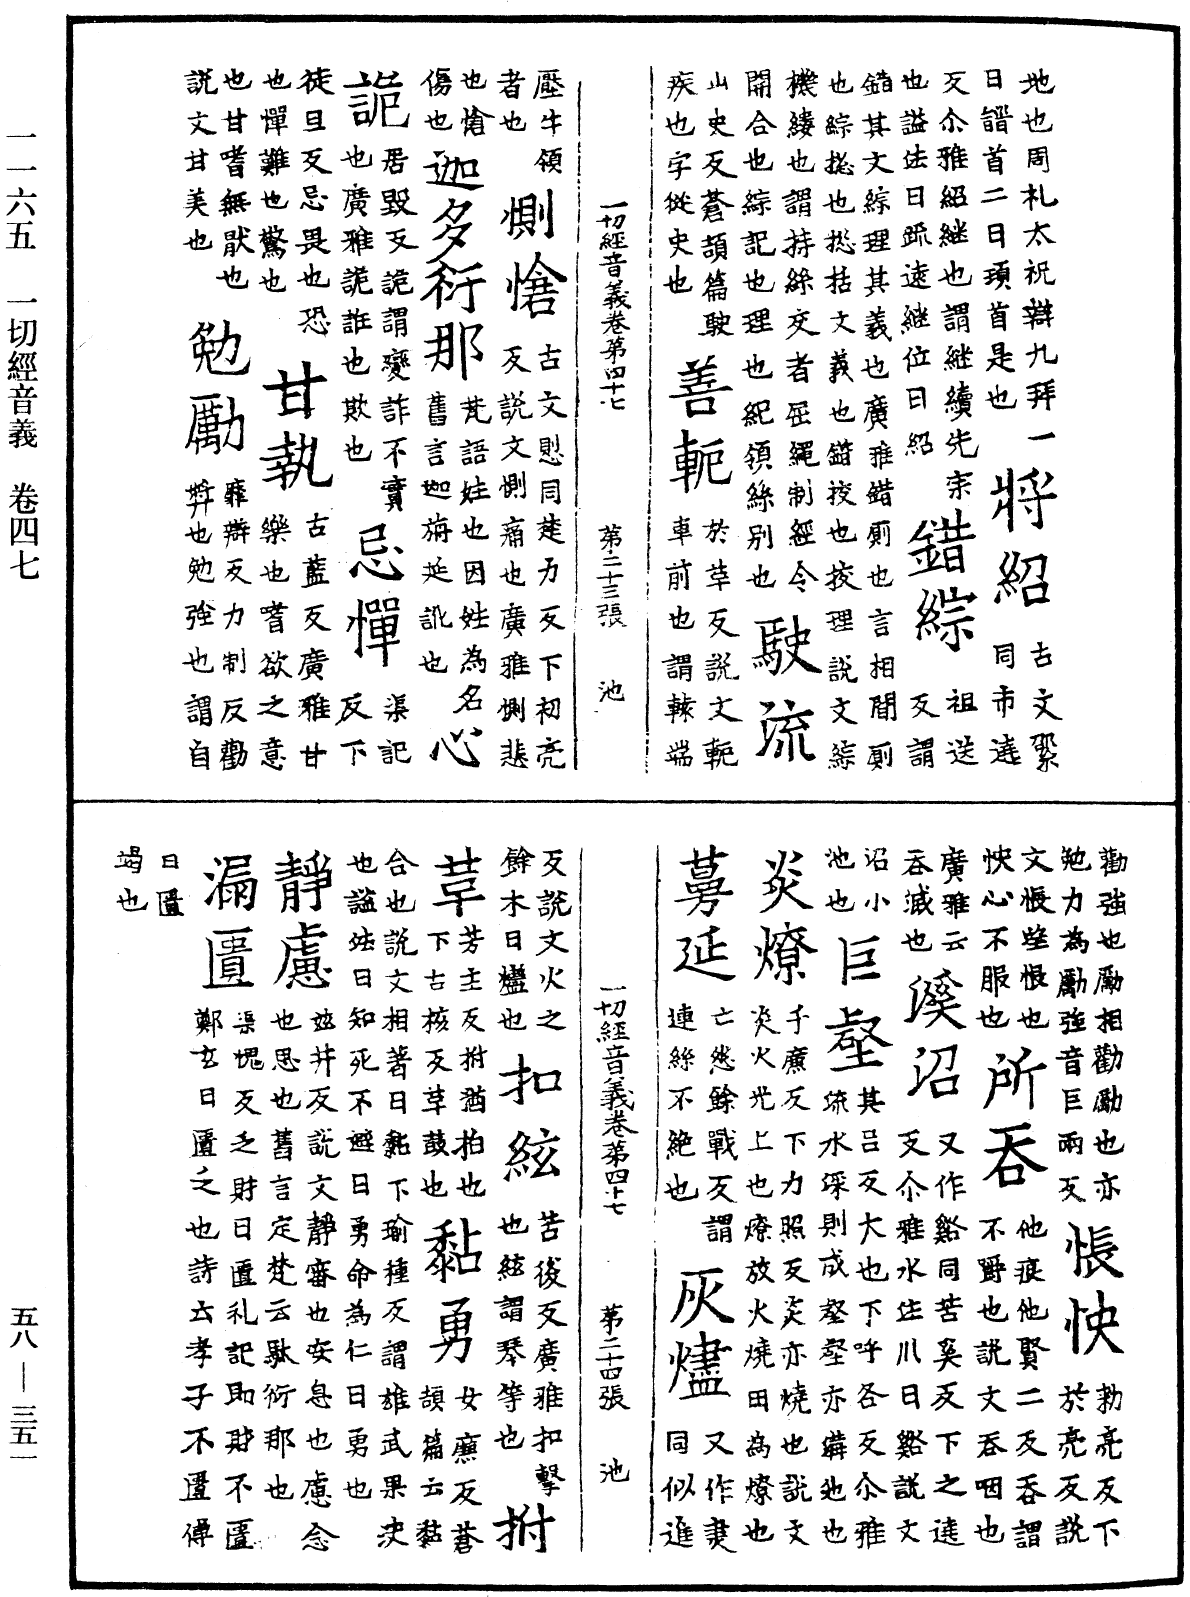 地也周礼太祝辯九拜一
日䭫首二日頊首是也
將紹
古文綤
同市遶
反尒雅紹継也謂継續先宗
也謚法曰踈遠継位曰紹
錯綜
祖送
反謂
錯其文綜理其義也廣雅錯廁也言相間廁
也綜捴也捴括文義也錯挍也挍理說文綜
機縷也謂持絲交者屈繩制經令
開合也綜記也理也紀領絲别也
駛流
山史反蒼頡篇駛
疾也字從史也
善軛
於革反說文軛
車前也謂轅端
一切經音義卷第四十七 第二十三張 池
壓牛領
者也
惻愴
古文㥽同楚力反下初亮
反說文惻痛也廣雅惻悲
也愴
傷也
迦多衍那
梵語姓也因姓為名
舊言迦旃延訛也
心
詭
居毀反詭謂變詐不實
也廣雅詭誑也欺也
忌憚
渠記
反下
徒旦反忌畏也恐
也憚難也驚也
甘執
古藍反廣雅甘
樂也嗜欲之意
也甘嗜無猒也
說文甘美也
勉勵
靡辯反力制反勸
也勉強也謂自
勸強也勵相勸勵也亦
勉力為勵強音巨兩反
悵怏
勑亮反下
於亮反說
文悵望恨也
怏心不服也
所吞
他痕他賢二反吞謂
不嚼也說文吞咽也
廣雅云
吞滅也
溪沼
又作谿同苦奚反下之遶
反尒雅水注川曰谿說文
沼小
池也
巨壑
其吕反大也下呼各反尒雅
㳅水深則成壑壑亦溝池也
炎燎
千廉反下力照反炎亦燒也說文
炎火光上也燎放火燒田為燎也
蔓延
亡怨餘戰反謂
連綿不絶也
灰燼
又作㶳
同似進
一切經音義卷第四十七 第二十四張 池
反說文火之
餘木曰燼也
扣絃
苦後反廣雅扣擊
也絃謂琴等也
拊
革
芳主反拊猶拍也
下古核反革鼓也
黏勇
女廉反蒼
頡篇云黏
合也說文相著曰黏下瑜種反謂雄武果决
也謚法曰知死不避曰勇命為仁曰勇也
靜慮
兹井反說文靜審也安息也慮念
也思也舊言定梵云馱衍那也
漏匱
渠愧反乏財曰匱礼記即財不匱
鄭玄曰匱乏也詩云孝子不匱傳
曰匱
竭也
一一六五 一切經音義 卷四七
五八—三五一